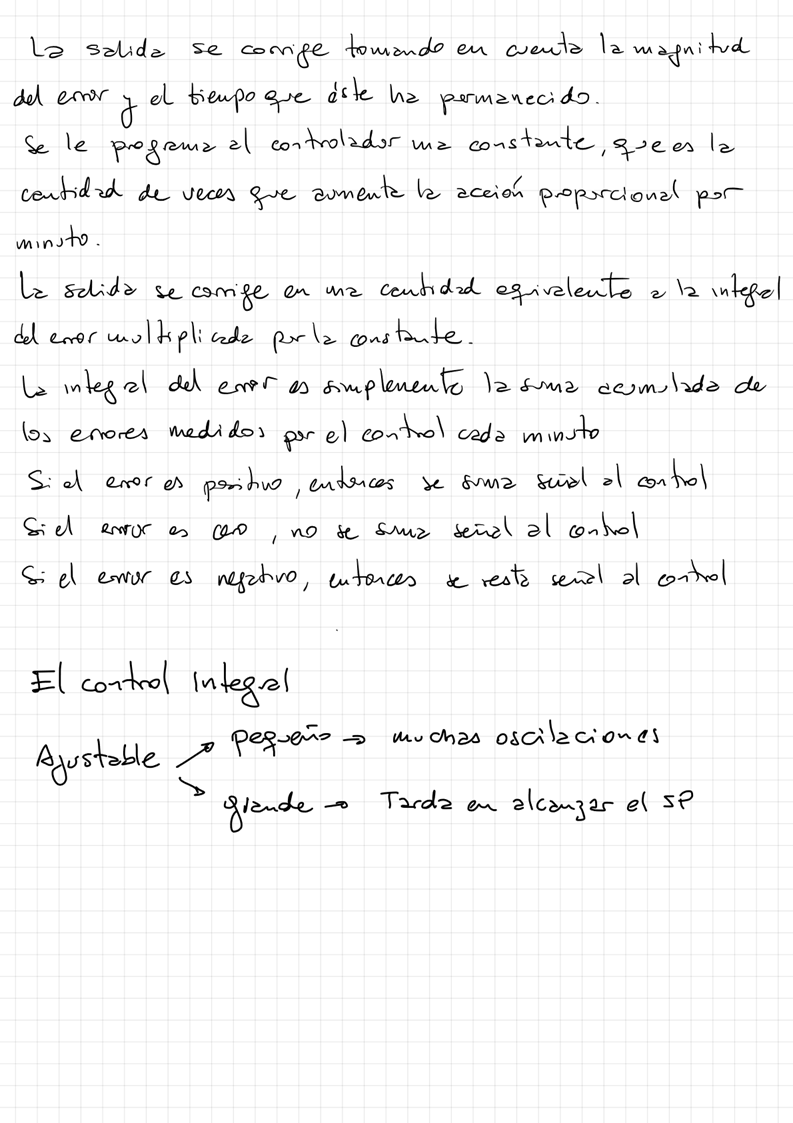 La salida se corrige tomando en cuenta la magnitud
del error y el tiempo que éste ha permanecido.
Se le programa al controlador una constante, que es la
cantidad de veces que aumenta la acción proporcional por
minuto.
La salida se corrige en una cantidad equivalente a la integral
del error multiplicada por la constante.
La integral del error es simplemente la suma acumulada de
los errores medidos por el control cada minuto
Si el error es positivo, entonces se suma señal al control
Si el error es cero, no se suma señal al control
Si el error es negativo, entonces se resta señal al control
El control Integral
Ajustable
pequeño → muchas oscilaciones
grande → Tarda en alcanzar el SP